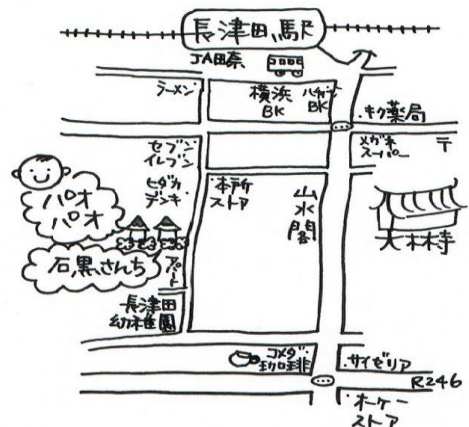 長津田駅
JA田奈
ラーメン
横浜
BK
ハザード
BK
キク薬局
セブン
イレブン
メガネ
スーパー
〒
ヒダカ
デンキ
本所
ストア
山水閣
大林寺
パオ
パオ
石黒さんち
アパート
長津田
幼稚園
コメダ
珈琲
サイゼリア
R246
オーケー
ストア